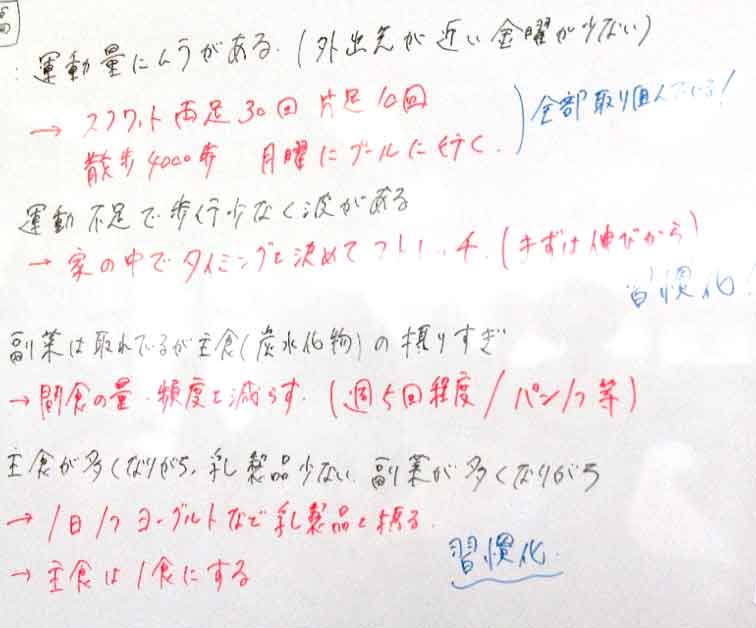 運動量にムラがある.(外出先が近い金曜が少ない)
→ スクワット両足30回 片足10回
全部取り組んでいる!
散歩4000歩 月曜にプールに行く.
運動不足で歩行少なく波がある
→ 家の中でタイミングを決めてストレッチ.(まずは伸びから)
習慣化!
副菜は取れてるが主食(炭水化物)の摂りすぎ
→間食の量・頻度を減らす.(週5回程度/パン1つ等)
主食が多くなりがち,乳製品少ない 副菜が多くなりがち
→ 1日1つヨーグルトなど乳製品を摂る.
習慣化.
→ 主食は1食にする